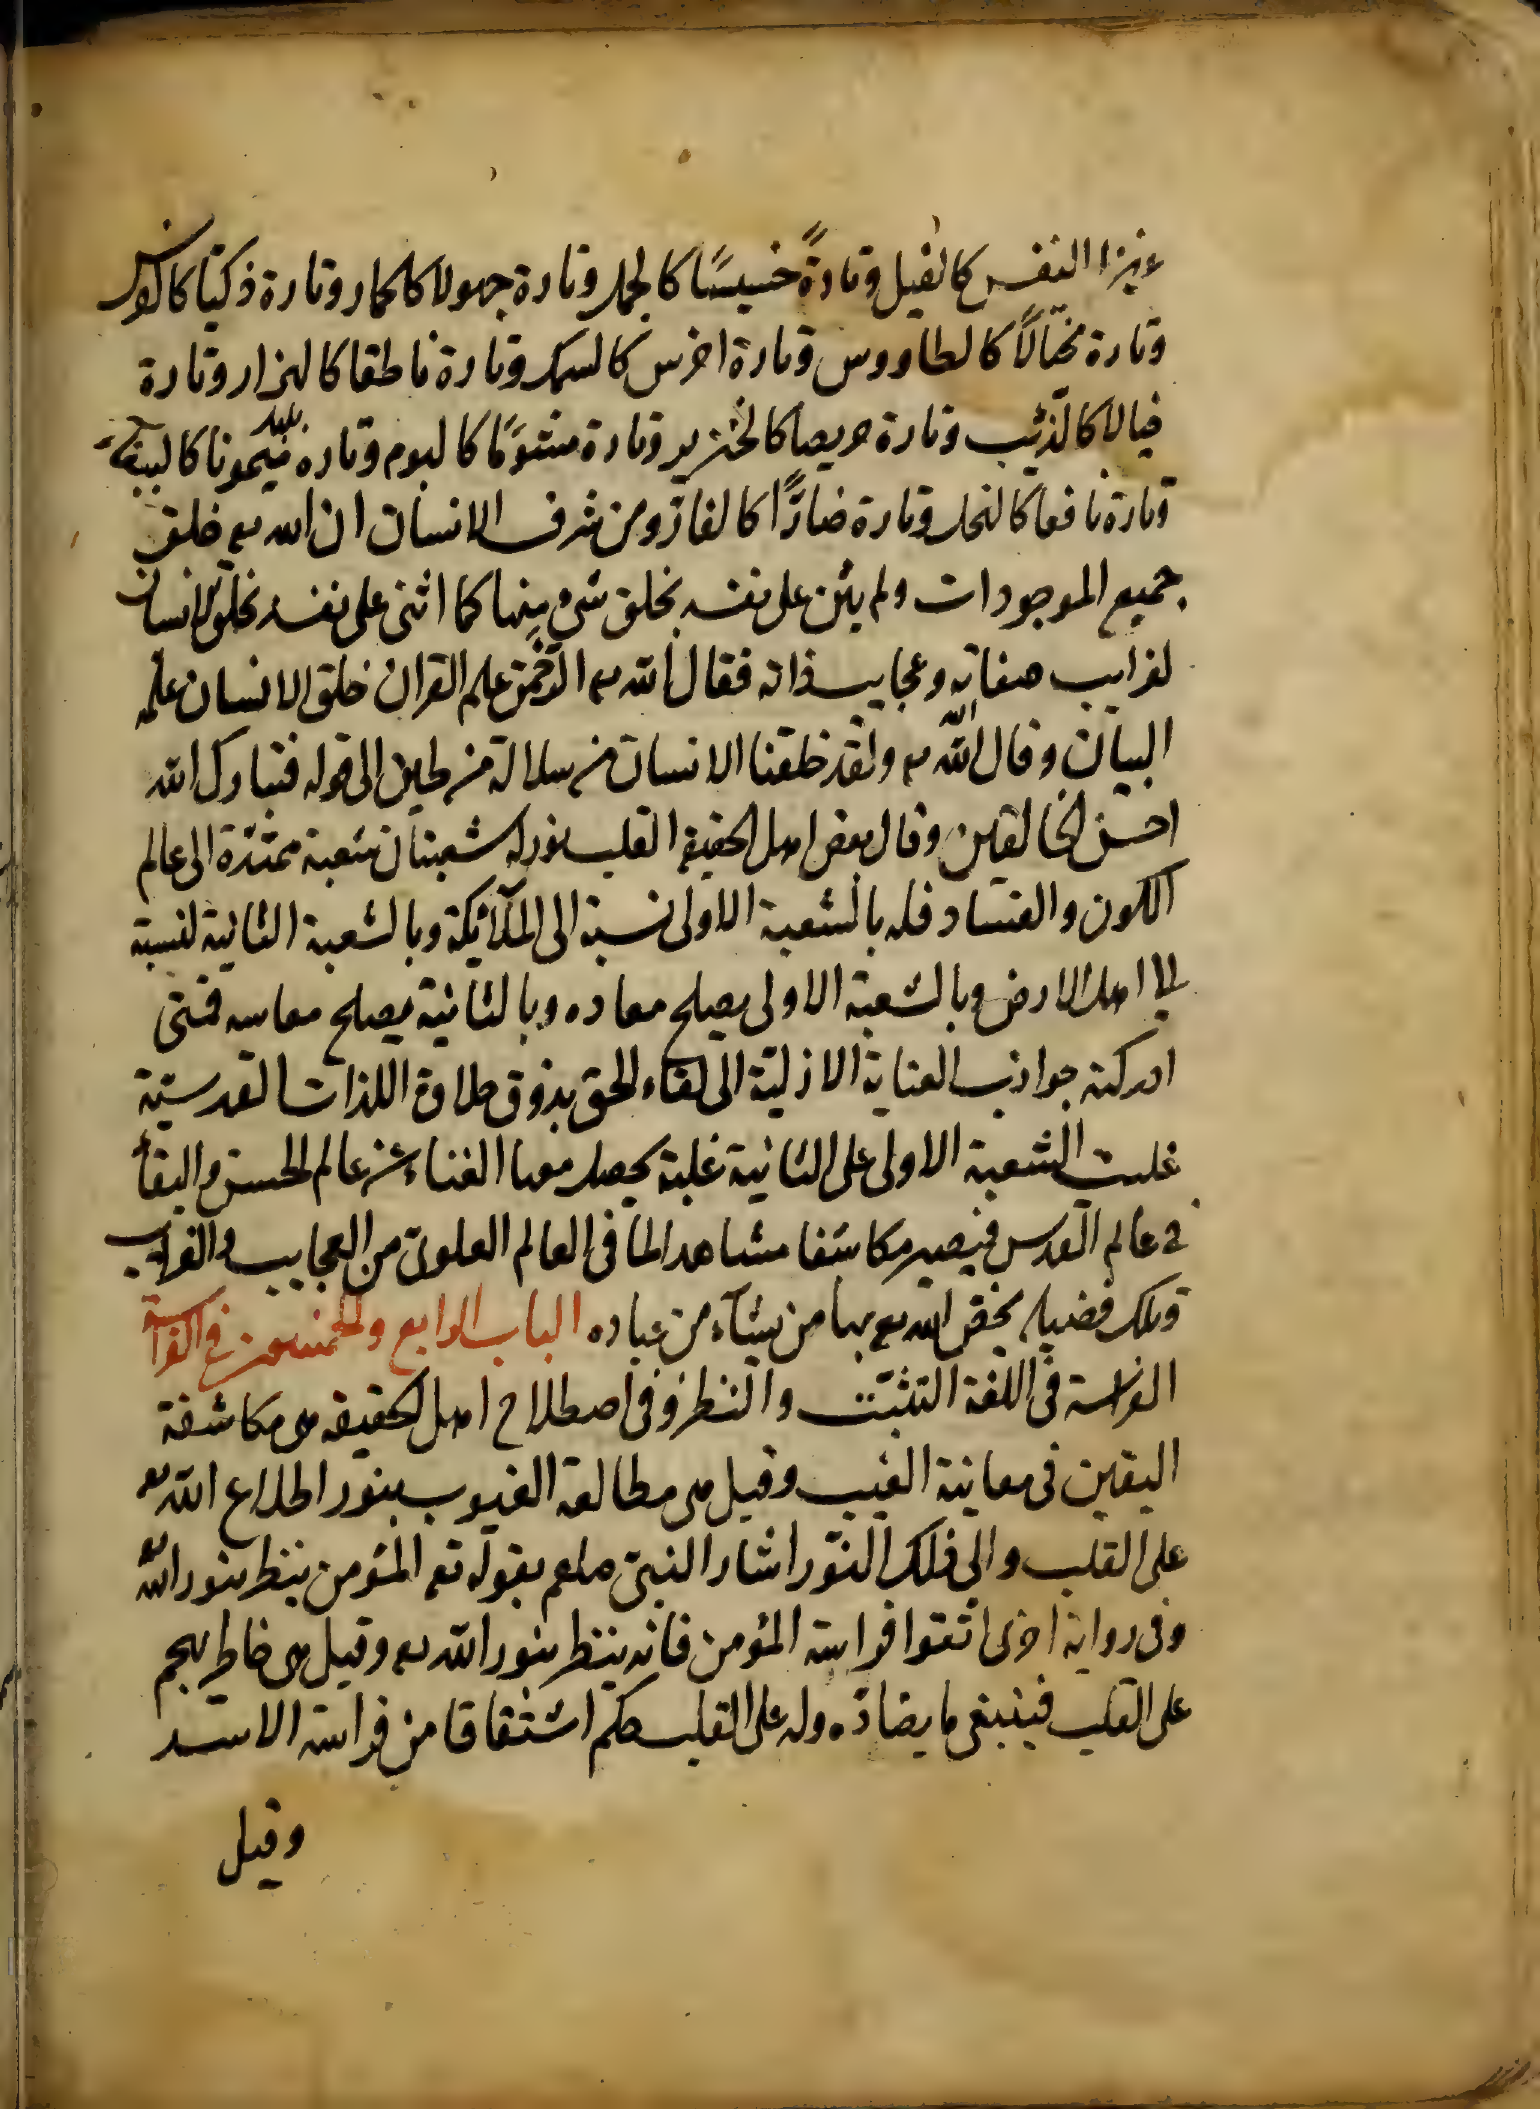 عزيزا النفس كالفيل وتارةً خسيسًا كالجمل وتارة جهولا كالحمار وتارة ذكيّا كالفرس
وتارة مختالًا كالطاووس وتارة اخرس كالسمك وتارة ناطقا كالهزار وتارة
ختالا كالذّئب وتارة حريصا كالخنزير وتارة مشوٴمًا كالبوم وتاره ميمونا كالببغاء
وتارة نافعا كالنحل وتارة ضارًّا كالفارة ومن شرف الانسان ان الله تع خلق
جميع الموجودات ولم يثن على نفسه بخلق شئ منها كما اثنى على نفسه بخلق الانسان
لغرايب صفاته وعجايب ذاته فقال الله تع الرّحمن علم القران خلق الانسان علمه
البيان وقال الله تع ولقد خلقنا الانسان من سلالة من طين الى قوله فتبارك الله
احسن الخالقين وقال بعض اهل الحقيقة القلب نور له شعبتان شعبة ممتدّة الى عالم
الكون والفساد فله بالشعبة الاولى نسبة الى الملآئكة وبالشعبة الثانية نسبة
الى اهل الارض وبالشعبة الاولى يصلح معاده وبالثانية يصلح معاشه فمتى
ادركته جواذب العناية الازليّة الى لقاء الحق بذوق حلاوة اللذات القدسيّة
غلبت الشعبة الاولى على الثانية غلبة يحصل معها الفناء عن عالم الحس والبقاء
فى عالم القدس فيصير مكاشفا مشاهدا لما فى العالم العلوى من العجايب والغرايب
وتلك فضيلة يخص الله تع بها من يشآء من عباده الباب الرابع والخمسون فى الفراسة
الفراسة فى اللغة التثبّت والنظر وفى اصطلاح اهل الحقيقه هى مكاشفة
اليقين فى معاينة الغيب وقيل هى مطالعة الغيوب بنور اطلاع الله تع
على القلب والى ذلك النّور اشار النبىّ صلعم بقوله تع المؤمن ينظر بنور الله تع
وفى رواية اخرى اتقوا فراسة المؤمن فانه ينظر بنور الله تع وقيل هى خاطر يهجم
على القلب فينبغى ما يضادّه وله على القلب حكم اشتقاقا من فراسة الاسد
وقيل